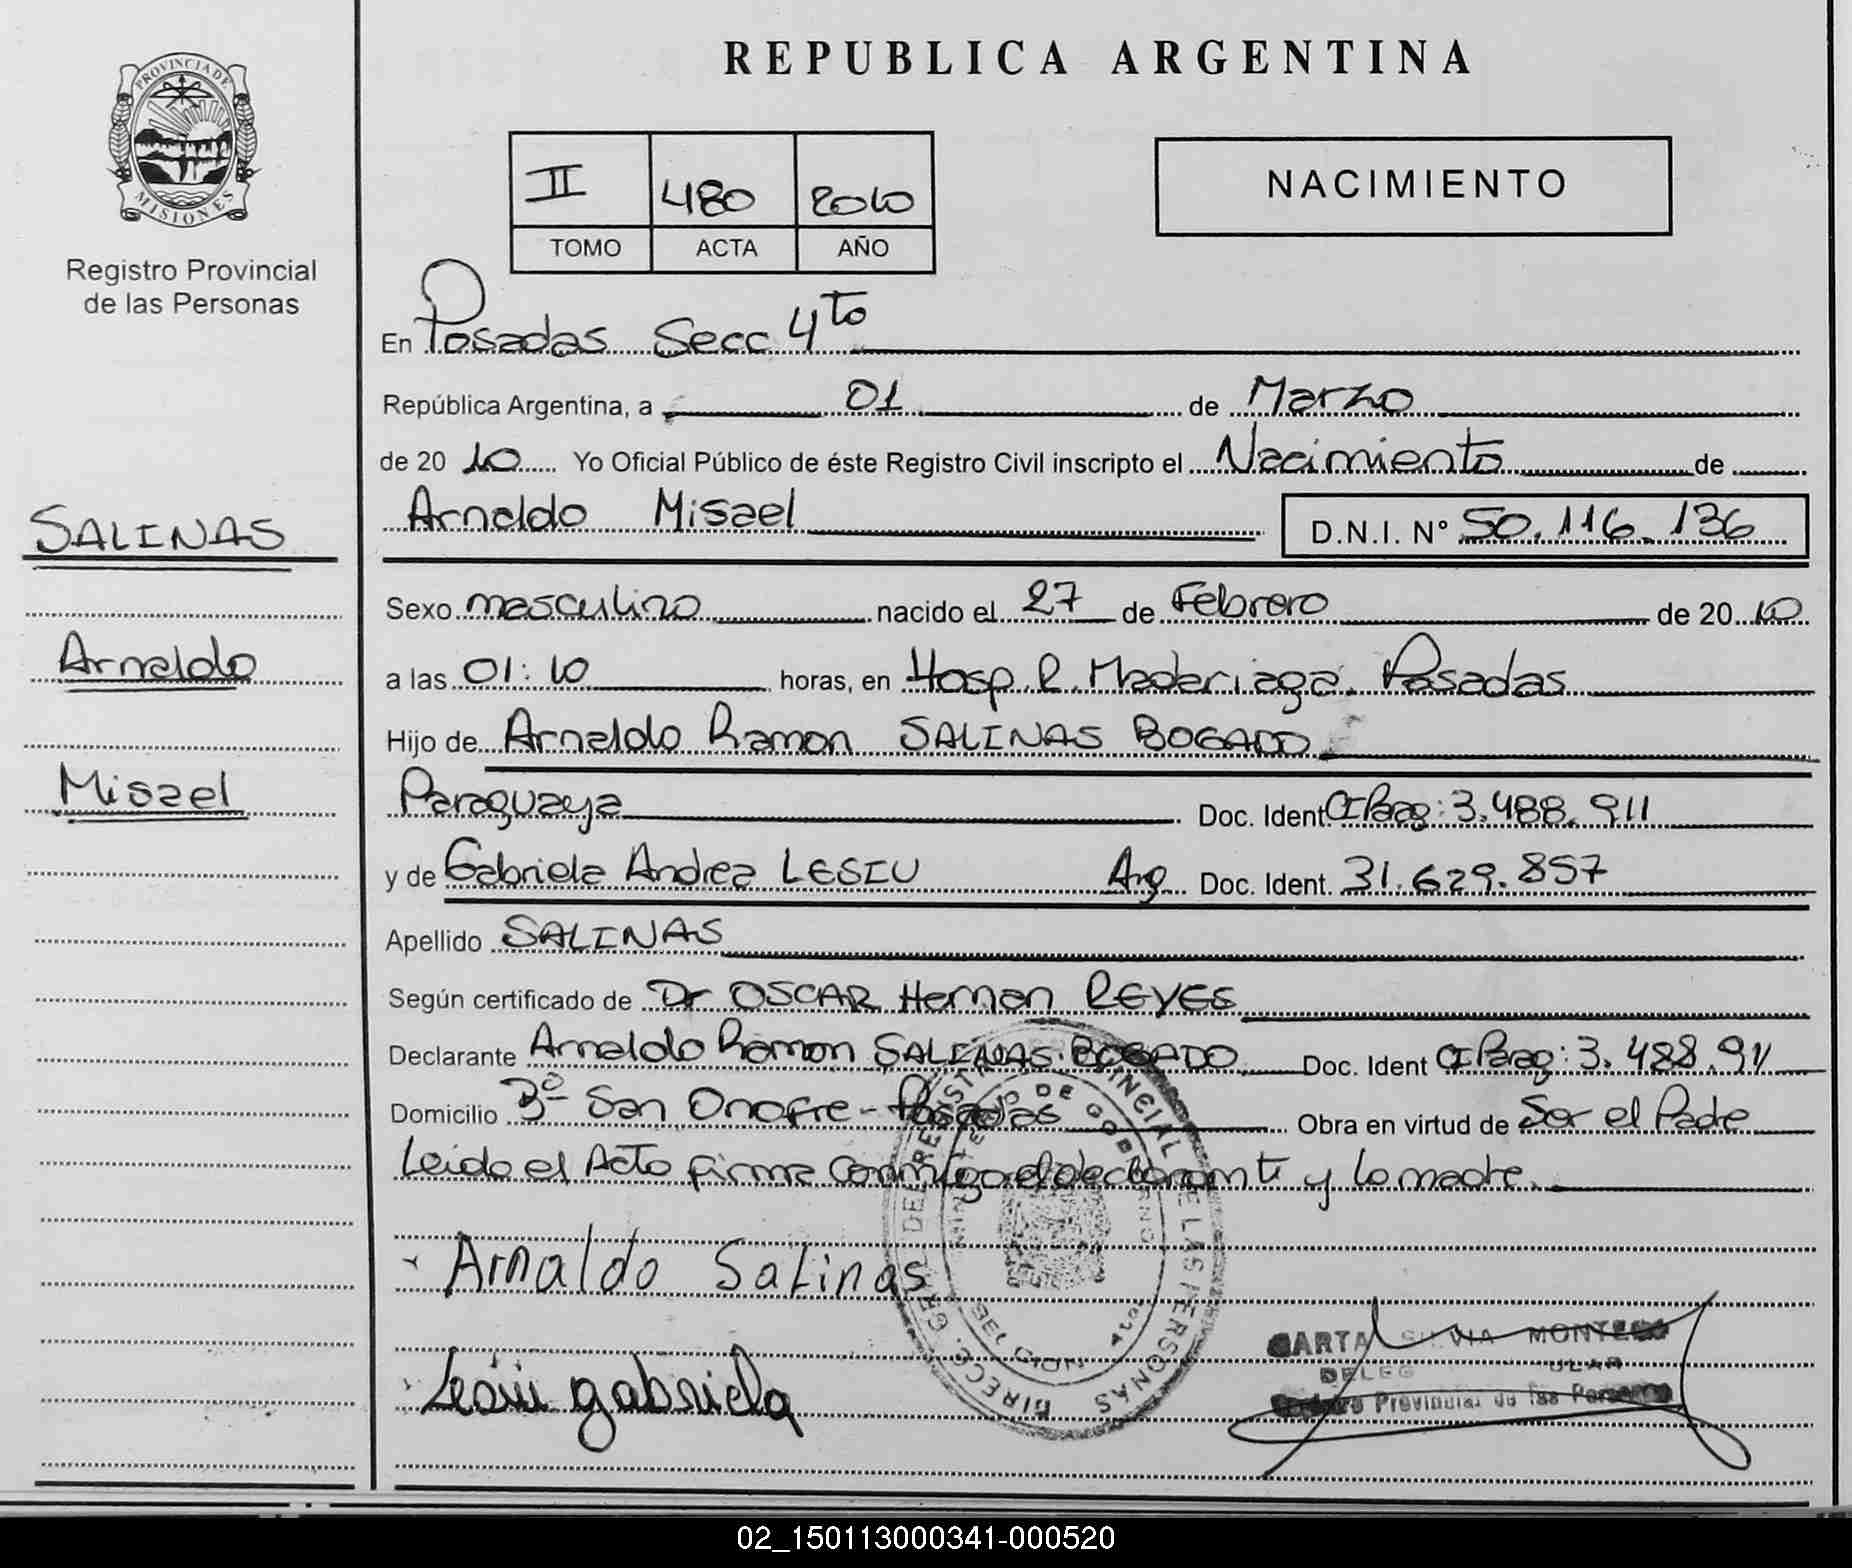 REPUBLICA ARGENTINA
PROVINCIA DE
MISIONES
Registro Provincial
de las Personas
II 480 2010
TOMO ACTA AÑO
NACIMIENTO
En Posadas Secc 4to
República Argentina, a 01 de Marzo
de 20 10 Yo Oficial Público de éste Registro Civil inscripto el Nacimiento de
Arnaldo Misael D.N.I. N° 50.116.136
SALINAS
Arnaldo
Misael
Sexo masculino nacido el 27 de Febrero de 20 10
a las 01:10 horas, en Hosp. R. Madariaga. Posadas
Hijo de Arnaldo Ramon SALINAS BOGADO
Paraguaya Doc. Ident CI Parag: 3.488.911
y de Gabriela Andrea LESIU Arg. Doc. Ident. 31.629.857
Apellido SALINAS
Según certificado de Dr OSCAR Hernan REYES
Declarante Arnaldo Ramon SALINAS BOGADO Doc. Ident CI Parag: 3.488.911
Domicilio B° San Onofre - Posadas Obra en virtud de Ser el Padre
Leida el Acta firma conmigo el declarante y la madre.
Arnaldo Salinas
Lesiu gabriela
DIRECC. GRAL. DEL REGISTRO PROVINCIAL DE LAS PERSONAS
MINISTERIO DE GOBIERNO
SILVIA
Provincial de las Personas
02_150113000341-000520